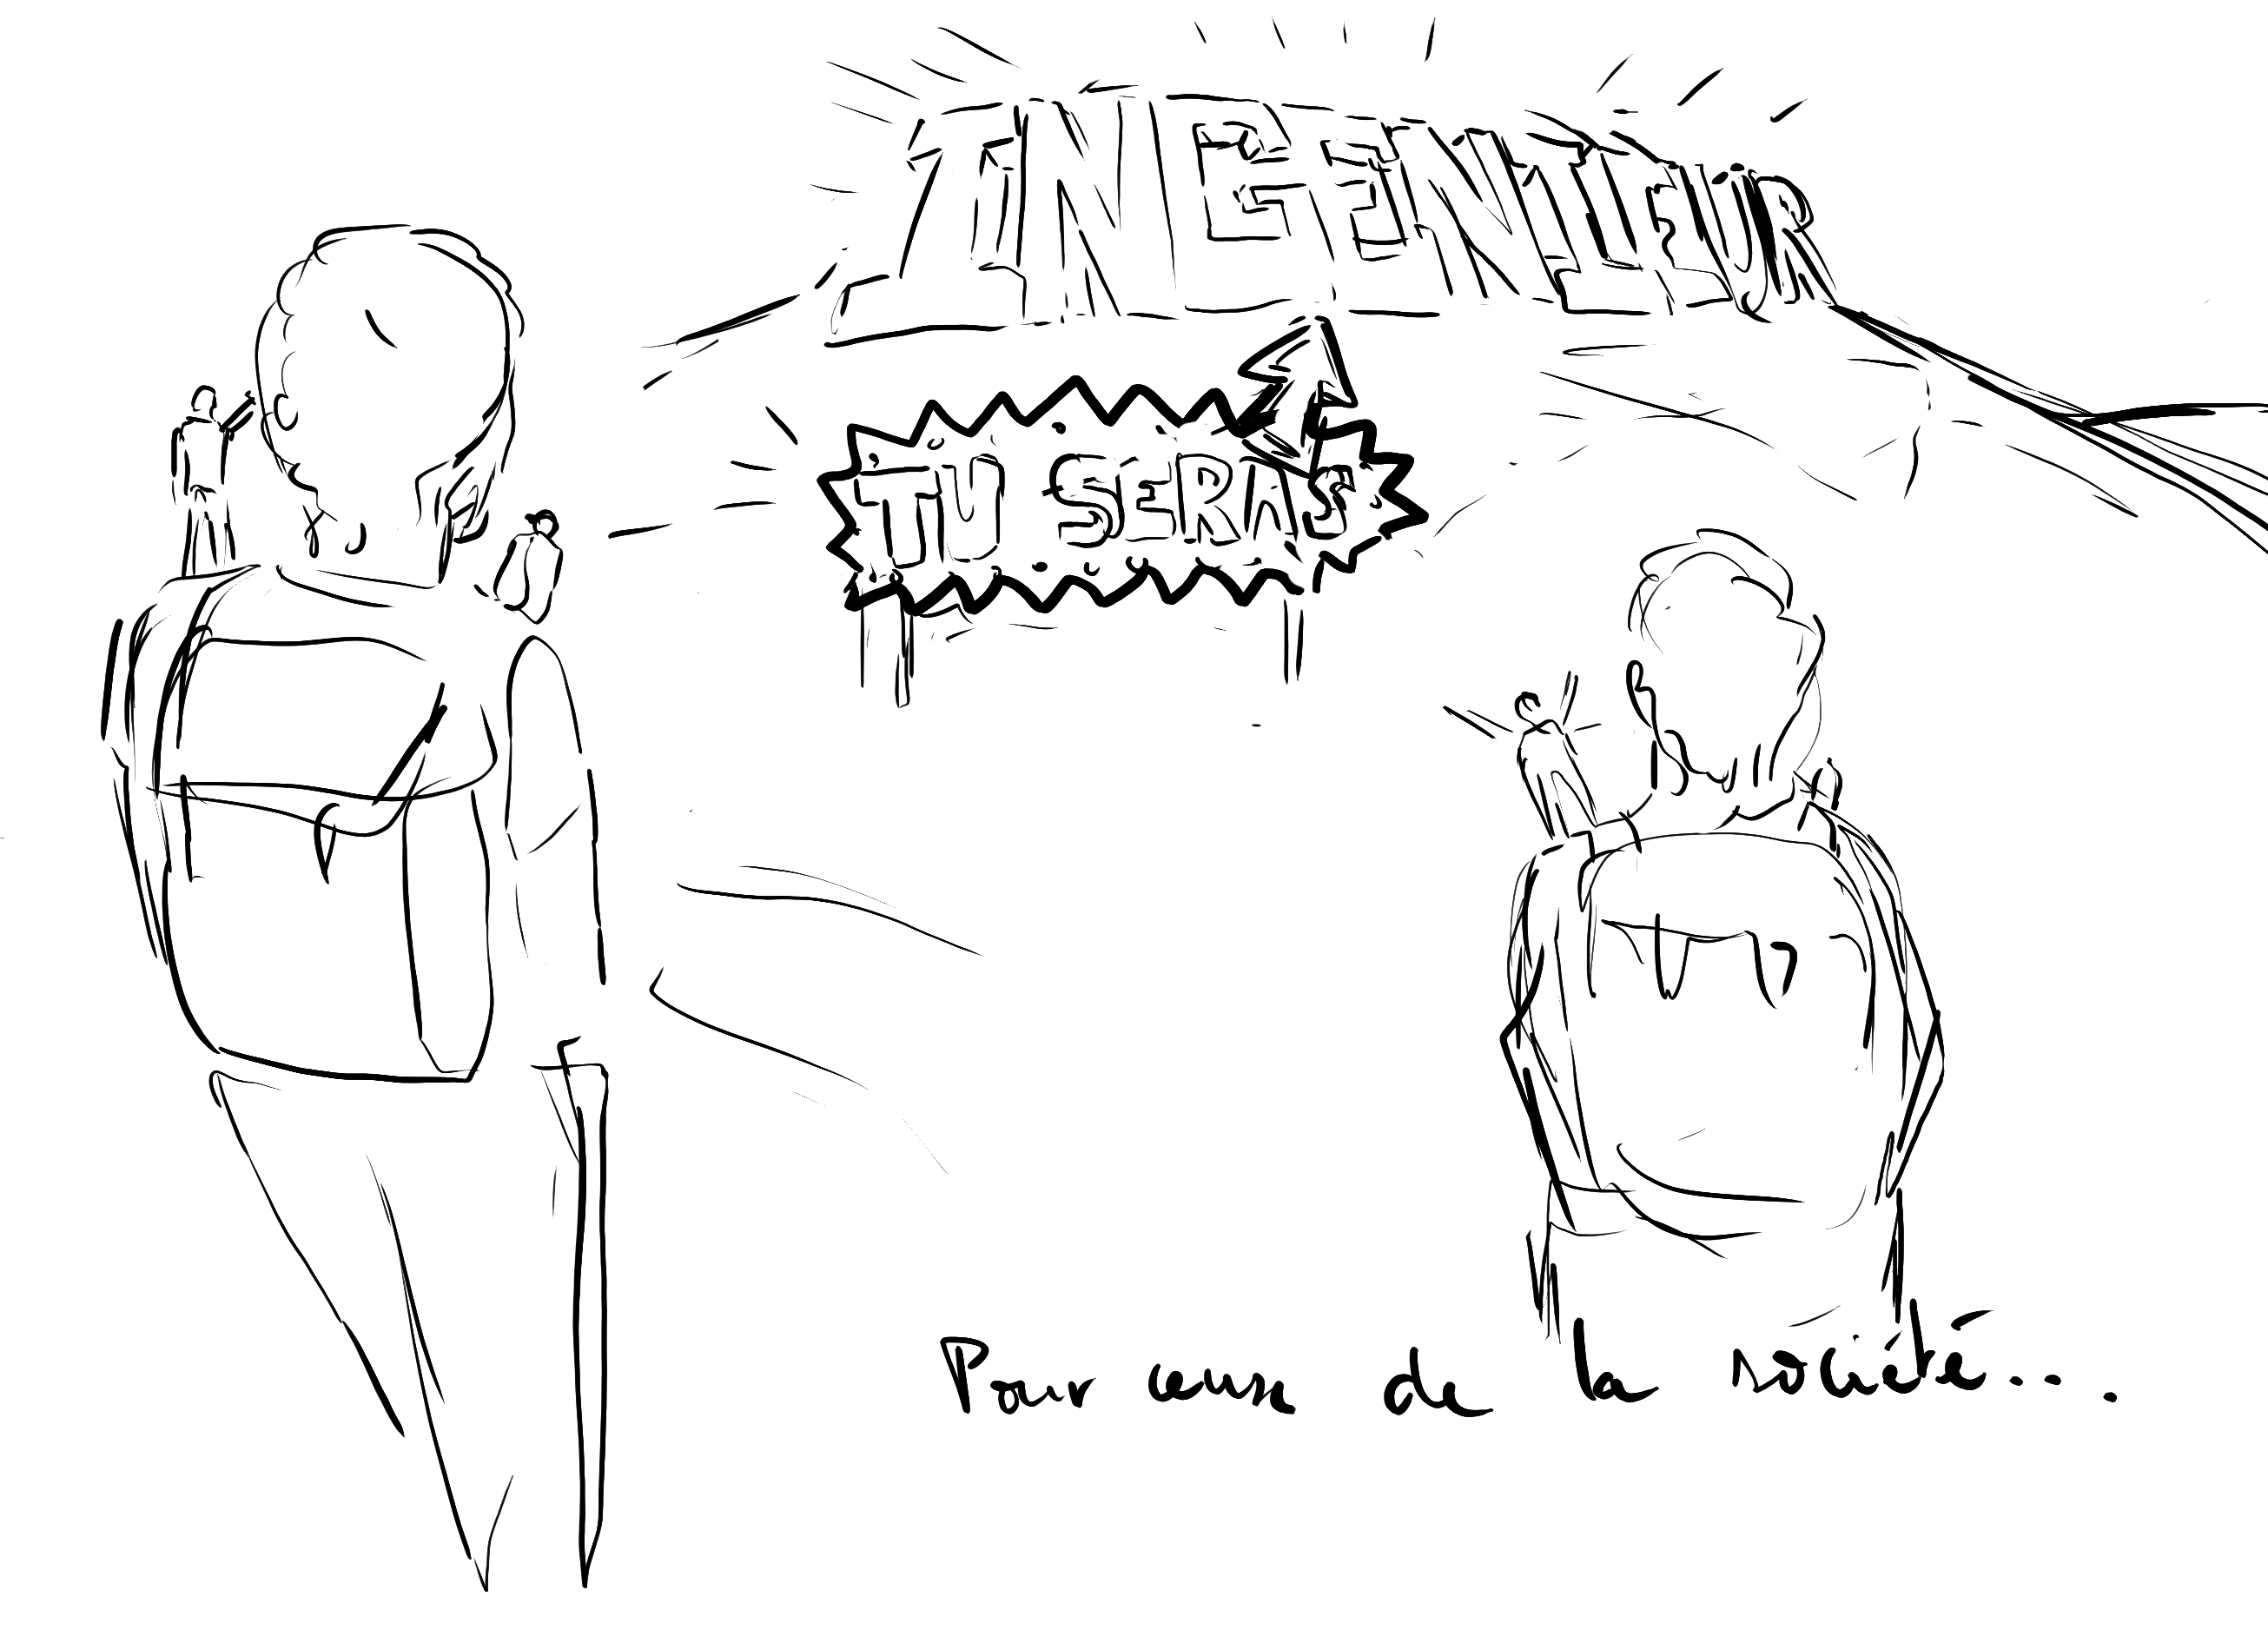 INGENIEUR
TU SERAS
Pour ceux de la société...